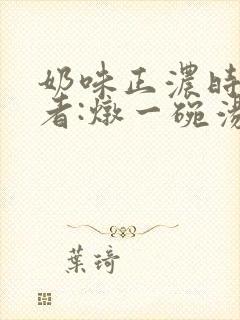 奶味正濃時
者:燉一碗湯
葉琦